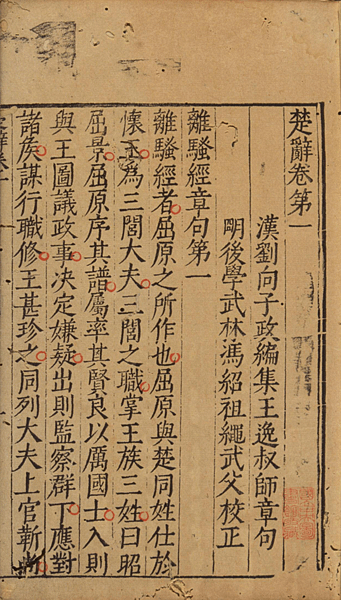 楚辭卷第一
漢劉向子政編集王逸叔師章句
明後學武林馮紹祖繩武父校正
離騷經章句第一
離騷經者屈原之所作也屈原與楚同姓仕於
懷王為三閭大夫三閭之職掌王族三姓曰昭
屈景屈原序其譜屬率其賢良以厲國士入則
與王圖議政事決定嫌疑出則監察群下應對
諸侯謀行職修王甚珍之同列大夫上官靳尚